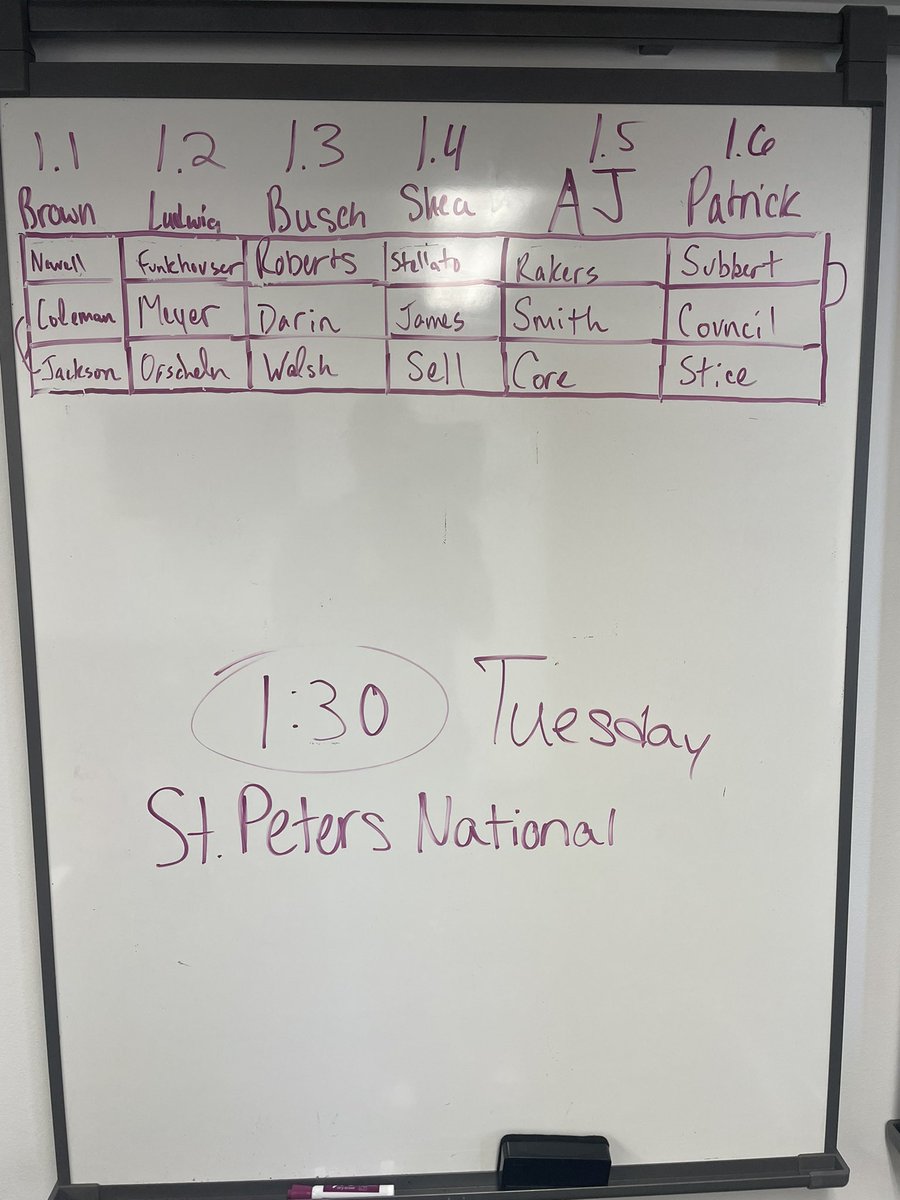 1.1 1.2 1.3 1.4 1.5 1.6
Brown Ludwig Busch Shea AJ Patrick
Nowell Funkhouser Roberts Stellato Rakers Subbert
Coleman Meyer Darin James Smith Council
Jackson Orscheln Walsh Sell Core Stice
1:30 Tuesday
St. Peters National